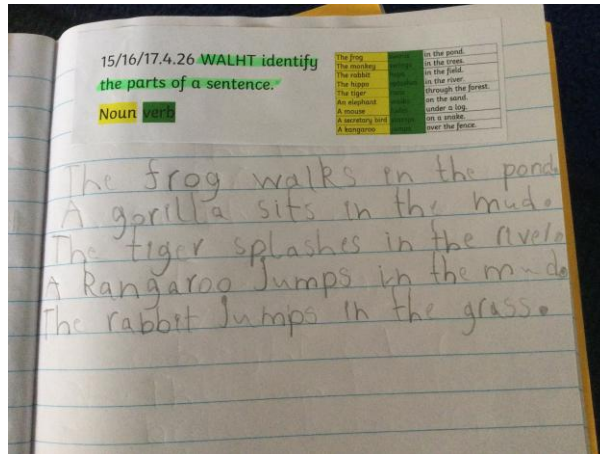 15/16/17.4.26 WALHT identify
the parts of a sentence.
Noun verb
The frog in the pond.
The monkey in the trees.
The rabbit in the field.
The hippo in the river.
The tiger through the forest.
An elephant on the sand.
A mouse under a log.
A secretary bird on a snake.
A kangaroo over the fence.
The frog walks in the pond.
A gorilla sits in the mud.
The tiger splashes in the river.
A kangaroo Jumps in the mud.
The rabbit Jumps in the grass.